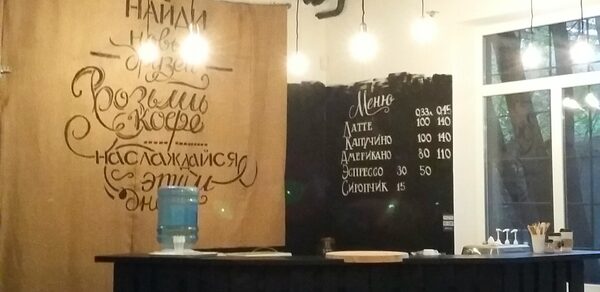 НАЙДИ
новых
друзей
Возьми
кофе
НАСЛАЖДАЙСЯ
этим
днём
Меню
0,33л 0,45
ЛАТТЕ 100 140
КАПУЧИНО 100 140
АМЕРИКАНО 80 110
ЭСПРЕССО 30 50
СИРОПЧИК 15